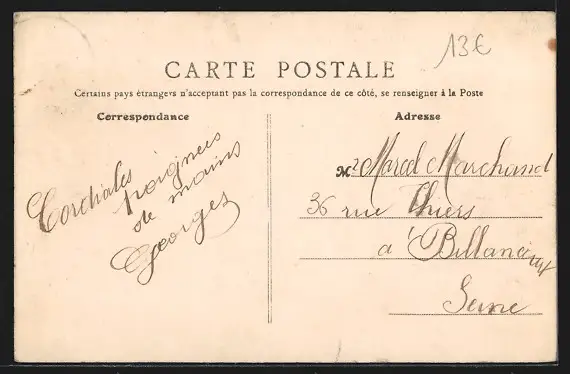 13€
CARTE POSTALE
Certains pays étrangers n'acceptant pas la correspondance de ce côté, se renseigner à la Poste
Correspondance
Cordiales
poignées
de mains
Georges
Adresse
Mr Marcel Marchand
36 rue Thiers
à Billancourt
Seine